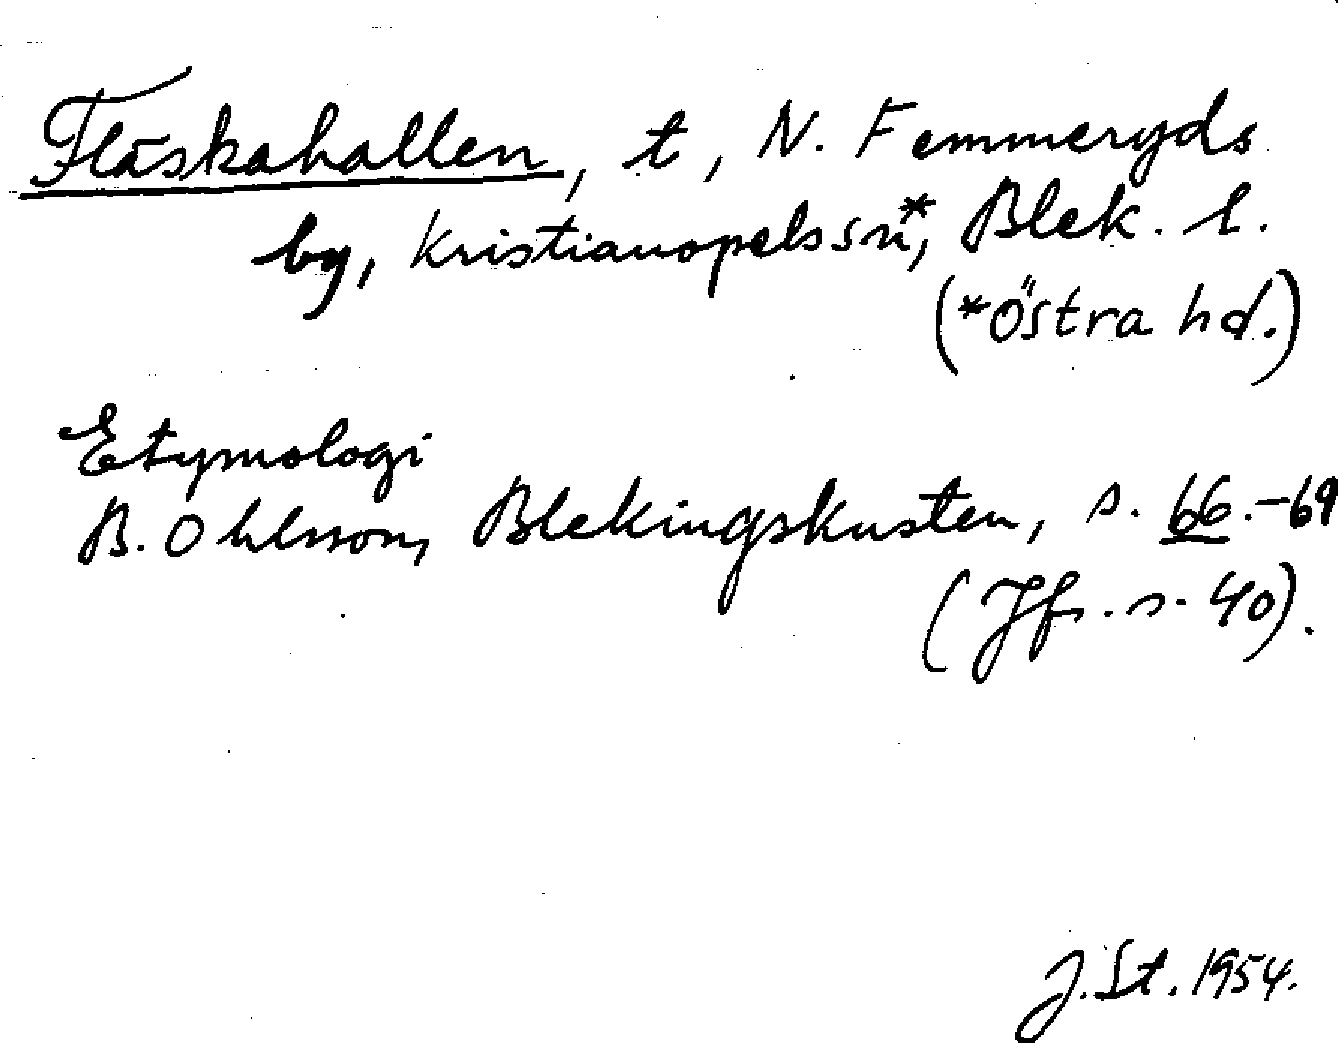 Fläskahallen, t, N. Femmeryds
by, Kristianopels sn*, Blek. l.
(*Östra hd.)
Etymologi
B. Ohlsson, Blekingskusten, s. 66.-69
(Jfr. s. 40).
J. St. 1954.